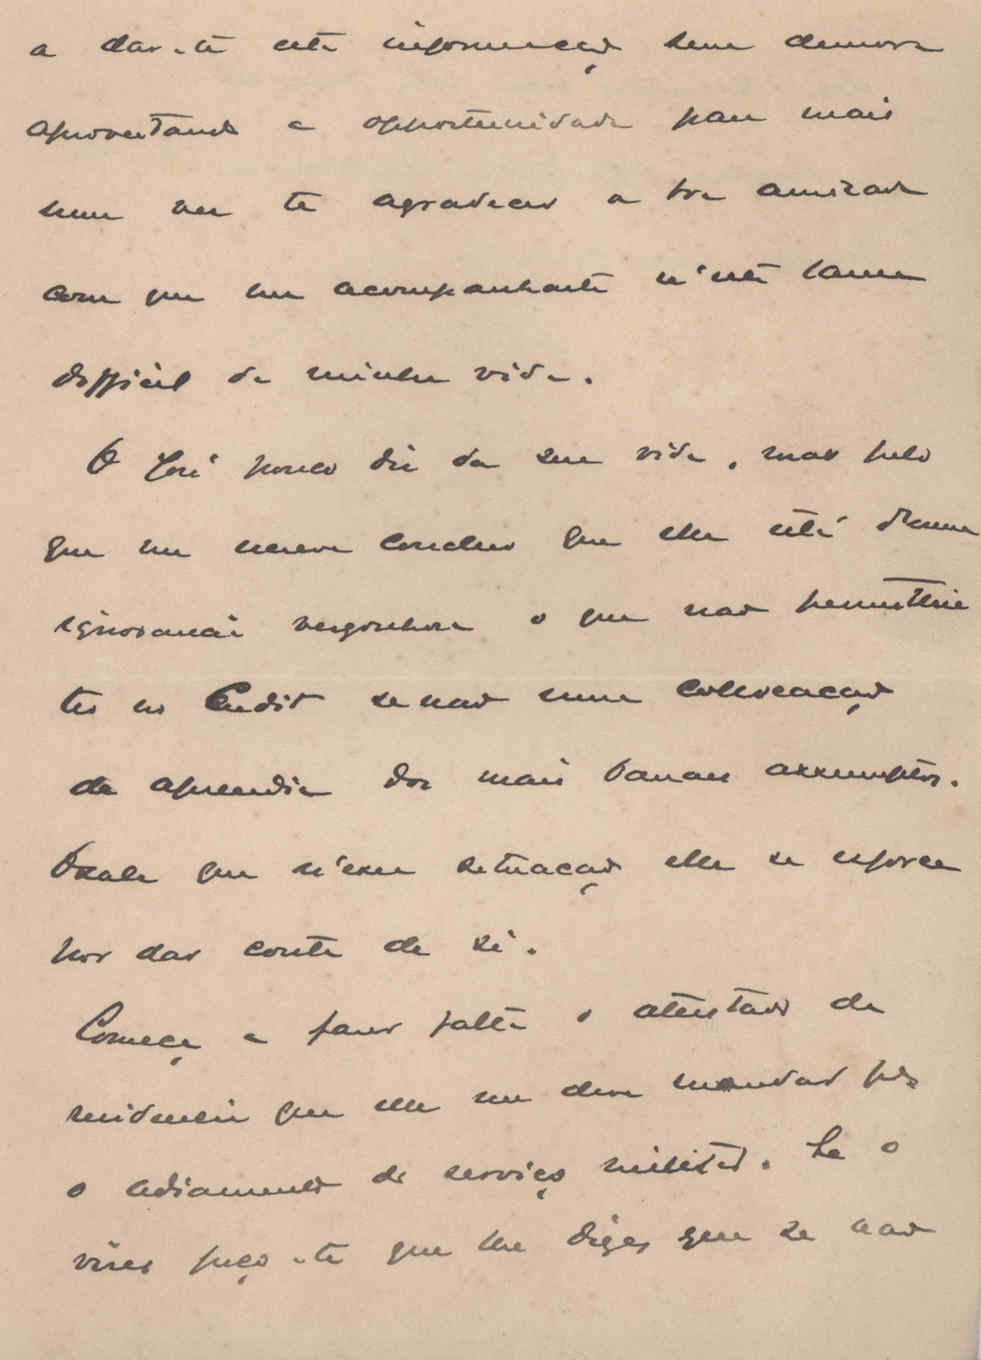 a dar-te esta informação sem demora
aproveitando a opportunidade para mais
uma vez te agradecer a tua amizade
com que me acompanhaste n'este lance
difficil da minha vida.
O José pouco diz da sua vida, mas pelo
que me escreve concluo que elle está d'uma
ignorancia vergonhosa o que não permittiria
ter no Credit se não uma collocação
de aprendiz dos mais banaes assumptos.
Oxalá que n'essa situação elle se esforce
por dar conta de si.
Começa a fazer falta o atestado de
residencia que elle me deve mandar pª
o adiamento do serviço militar. Se o
vires peço-te que lhe digas que se não